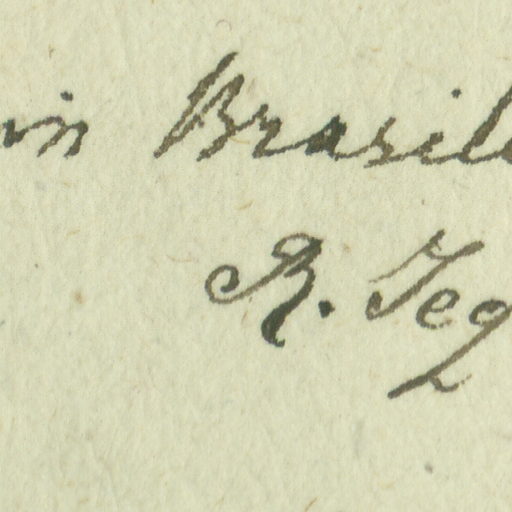 in Brasil
R. Teg